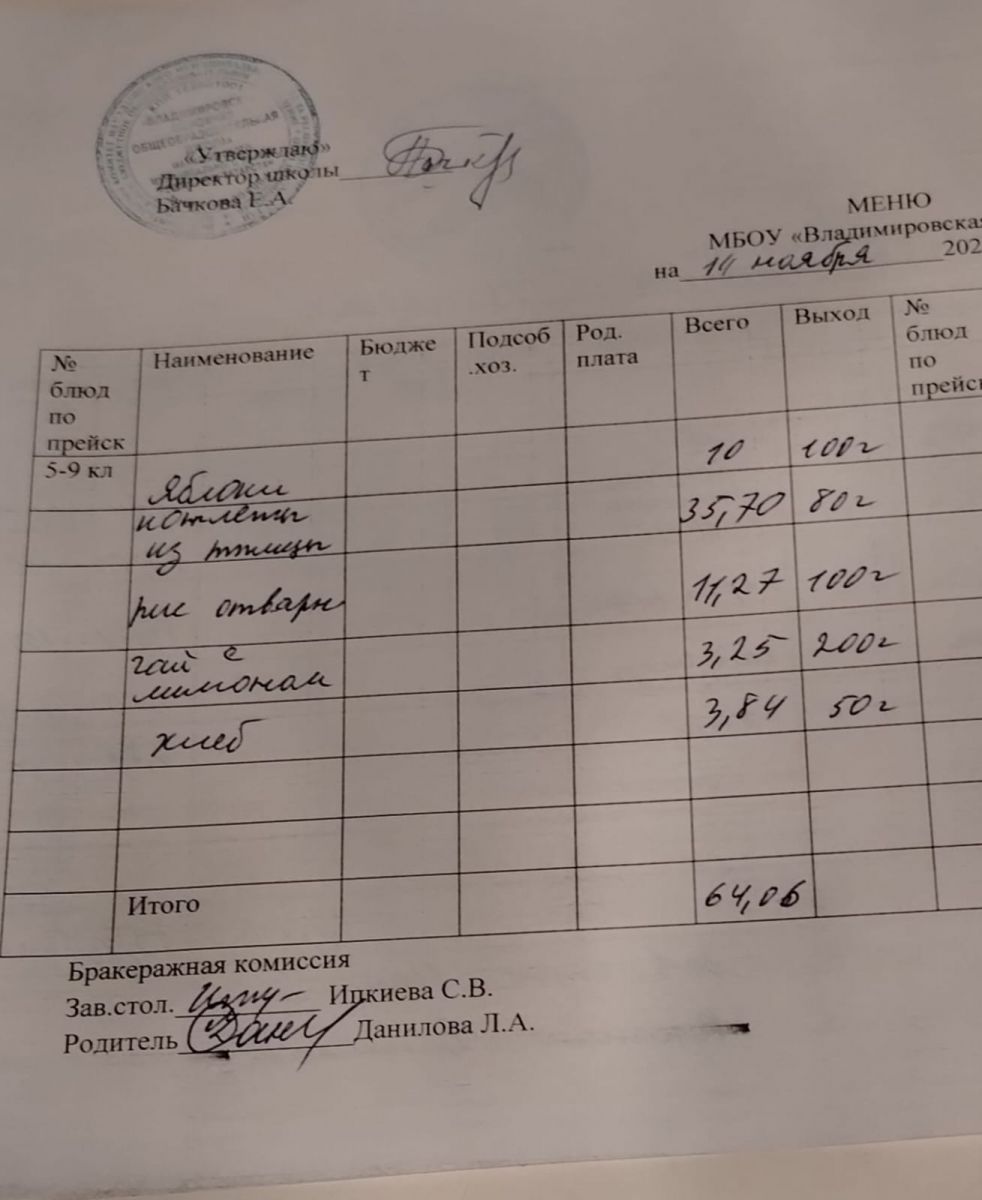 ВЛАДИМИРОВСК
ОБЩЕОБРАЗОВАТЕЛЬНАЯ
«Утверждаю»
Директор школы
Бачкова Е.А.
МЕНЮ
МБОУ «Владимировская
на 14 ноября 202
№ блюд по прейск Наименование Бюджет Подсоб.хоз. Род. плата Всего Выход № блюд по прейск
5-9 кл Яблоки 10 100г
котлеты из птицы 35,70 80г
рис отварн 11,27 100г
чай с лимоном 3,25 200г
хлеб 3,84 50г
Итого 64,06
Бракеражная комиссия
Зав.стол. Ипкиева С.В.
Родитель Данилова Л.А.